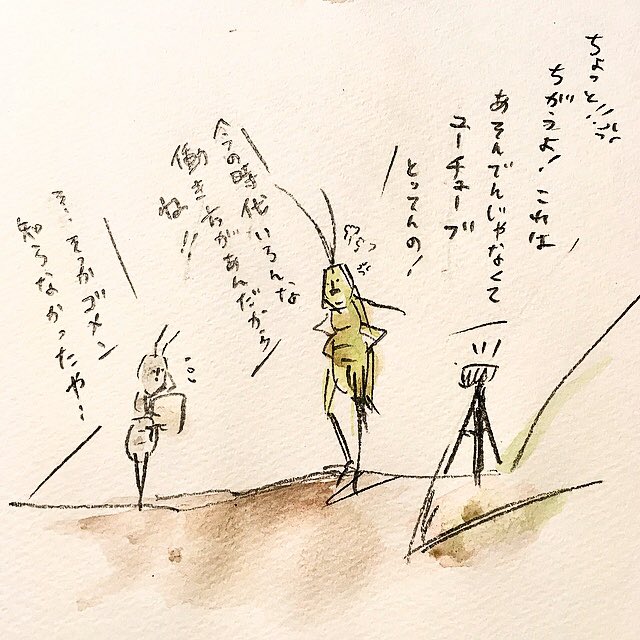 ちょっと!!
ちがうよ！これは
あそんでんじゃなくて
ユーチューブ
とってんの！
今の時代いろんな
働き方があんだから
ね!!
そ、そっかゴメン
知らなかったや…